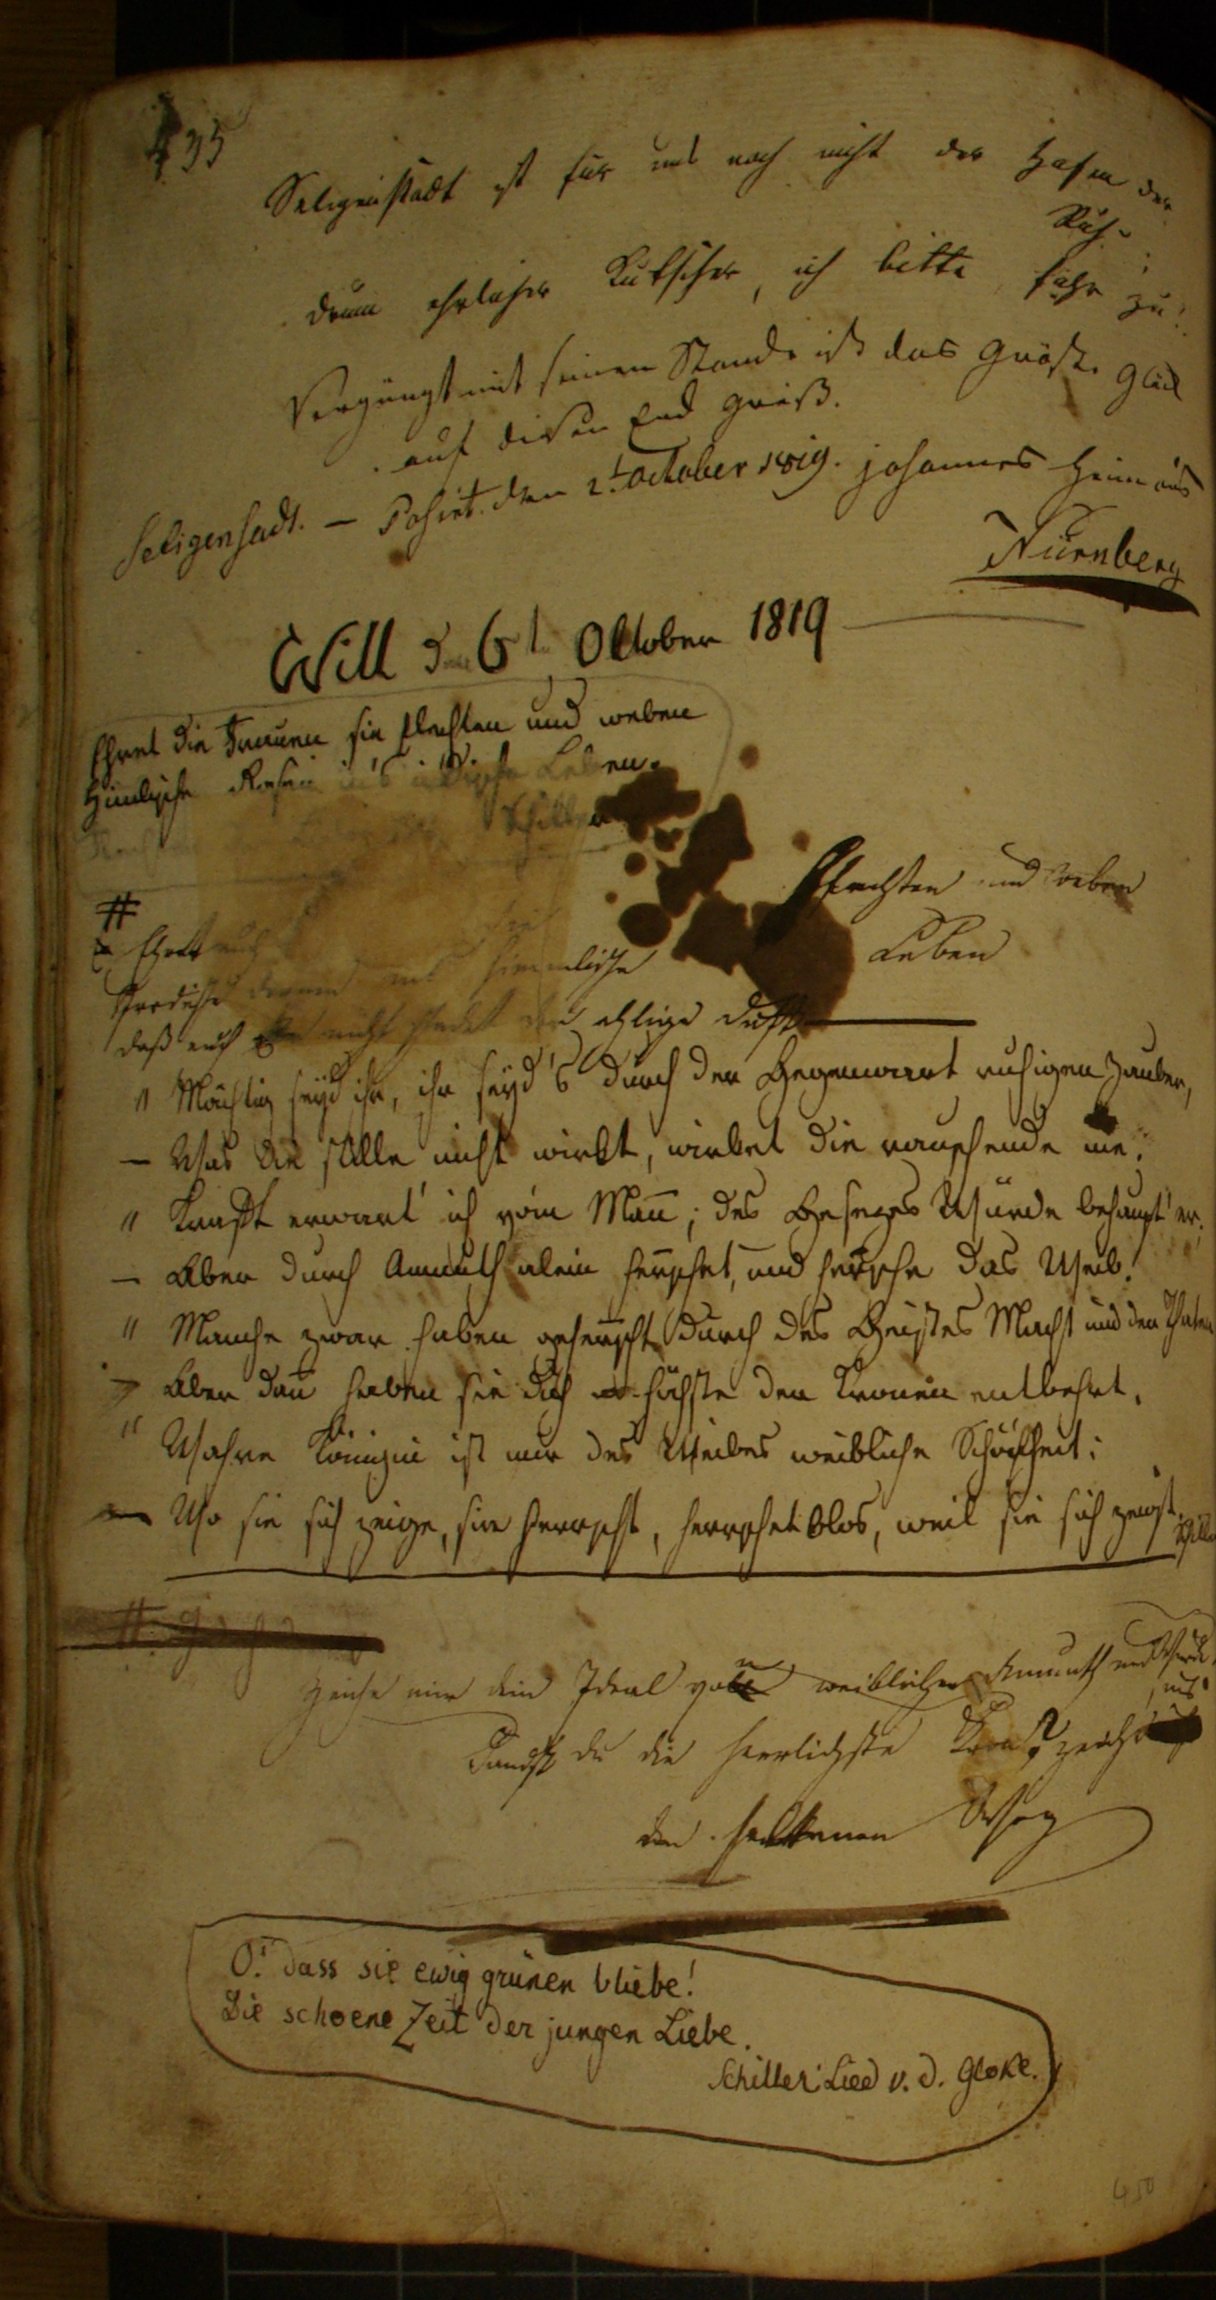 435
Seligenstadt ist für uns noch nicht der Hafen der
Ruh.
drum ehrlicher Kutscher, ich bitte fahr zu!
Vergüngt mit seinem Stande ist das Gröste Glück
auf diser Erd
Seligenstadt. — den 2t October 1819. Johannes Heim aus
Nürnberg
Will den 6t Oktober 1819
Ehret die Frauen sie flechten und weben
Himlische Rosen in's irdische Leben.
Schiller
#
Ehret
flechten und weben
himmlische Leben
daß euch nicht
" Mächtig seyd ihr, ihr seyd's durch der Gegenwart ruhigen Zauber,
— Was die stille nicht wirkt, wirket die rauschende nie.
" Kraft erwart' ich vom Mañ; des Gesezes Würde behaupt' er,
— Aber durch Anmuth alein herrschet, und hersche das Weib!
" Manche zwar haben geherrscht durch des Geistes Macht und der Thaten
— Aber dañ haben sie dich höchste der Kronen entbehrt.
" Wahre Königin ist nur des Weibes weibliche Schönheit;
— Wo sie sich zeige, sie herrscht, herrschet blos, weil sie sich zeigt.
Schiller
#
mir dein Ideal von weiblicher Anmuth und Würde,
du die herrlichste
den seltenen Weg
O! dass sie ewig grünen bliebe!
Die schoene Zeit der jungen Liebe.
Schiller: Lied v. d. Gloke.
450